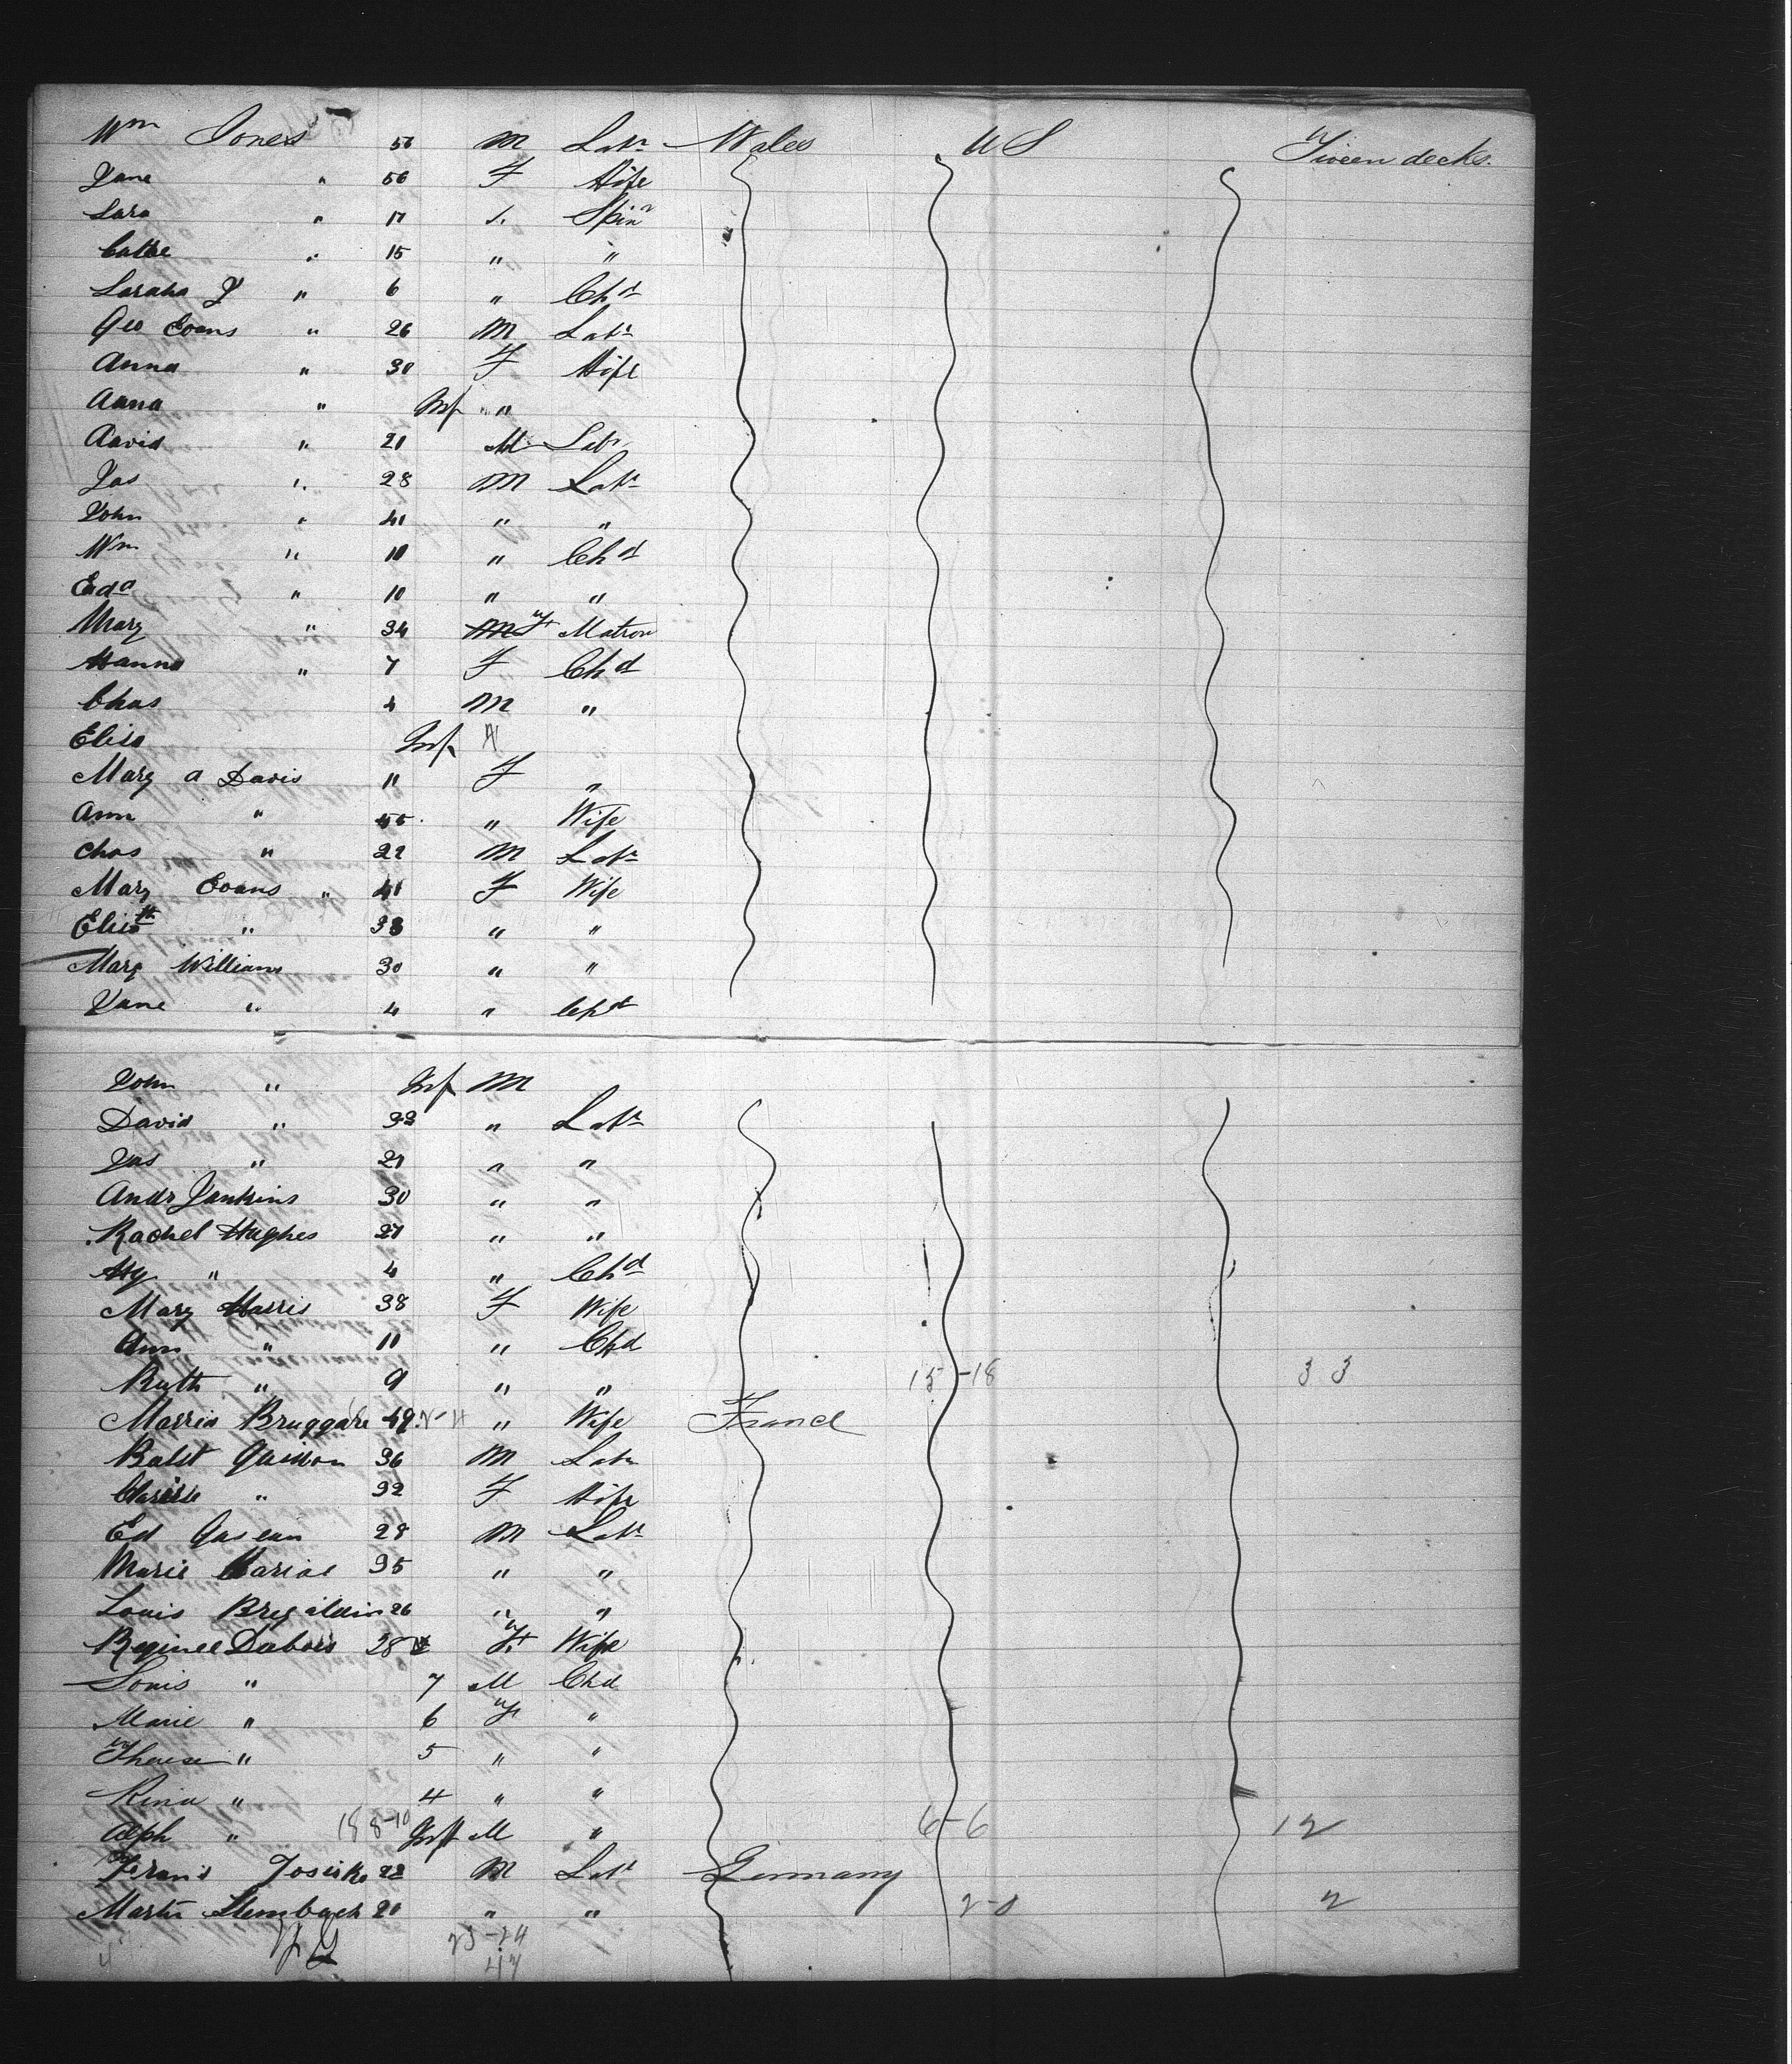 Wm Jones 56 M Labr Wales U S Tween decks.
Jane " 56 F Wife
Sara " 17 " Spinr
Cathe " 15 " "
Sarah J " 6 " Chd
Geo Evans " 26 M Labr
Anna " 30 F Wife
Anna " Inf "
David " 21 M Labr
Jas " 28 M Labr
John " 41 " "
Wm " 11 " Chd
Edd " 10 " "
Mary " 34 F Matron
Hanna " 7 F Chd
Chas 4 M "
Elisa Inf
Mary A Davis 11 F "
Ann " 45 " Wife
Chas " 22 M Labr
Mary Evans " 41 F Wife
Elisth " 33 " "
Mary Williams 30 " "
Jane " 4 " Chd
John " Inf M
David " 33 " Labr
Jas " 21 " "
Andr Jenkins 30 " "
Rachel Hughes 27 " "
Hy " 4 " Chd
Mary Harris 38 F Wife
Ann " 11 " Chd
Ruth " 9 " " 15-18 33
Marria Bruggare 49 " Wife France
Balst 36 M Labr
Clarisse " 32 F Wife
Ed 28 M Labr
Marie 35 " "
Louis 26 " "
Reginee Dubois 38 F Wife
Louis " 7 M Chd
Marie " 6 F "
Therese " 5 " "
Rina " 4 " "
Alph " 18 8-10 Inf M " 6-6 12
Frans Josiska 22 M Labr Germany
Martin Stembach 21 " " 2-0 2
23-24
47